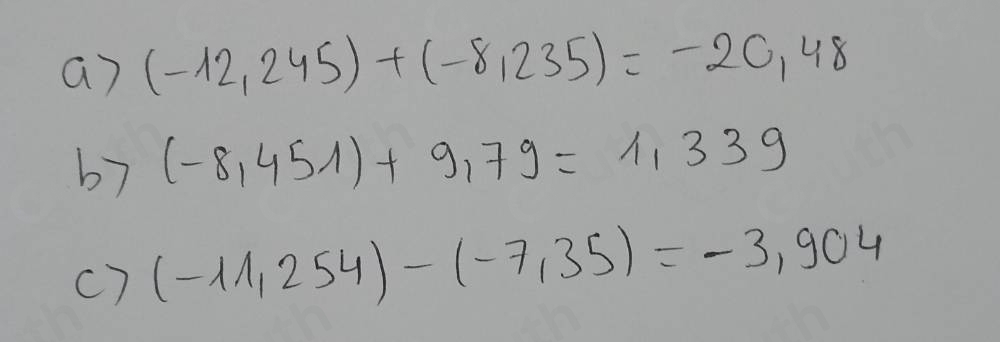 a) (-12,245) + (-8,235) = -20,48
b) (-8,451) + 9,79 = 1,339
c) (-11,254) - (-7,35) = -3,904